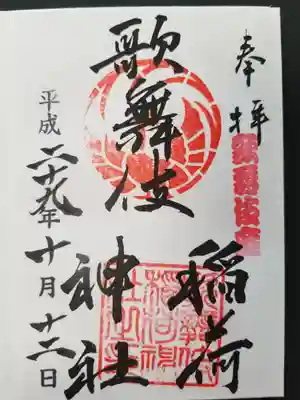 奉拝
歌舞伎座
歌舞伎
稲荷
神社
平成二十九年十月十二日